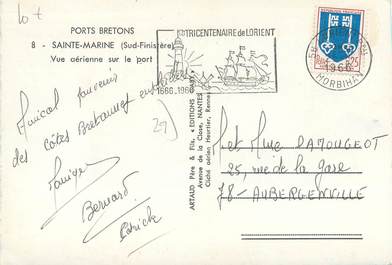 10 +
PORTS BRETONS
8 - SAINTE-MARINE (Sud-Finistère)
Vue aérienne sur le port
TRICENTENAIRE de LORIENT
1666-1966
1966
MORBIHAN
REPUBLIQUE FRANÇAISE
0,25
Amical souvenir
des côtes Bretonnes
29
Bernard
Patrick
ARTAUD Père & Fils, « EDITIONS GABY »
Avenue de la Close, NANTES
Cliché aérien Heurtier, Rennes
et Mme DAMOUGEOT
25, rue de la gare
78 - AUBERGENVILLE